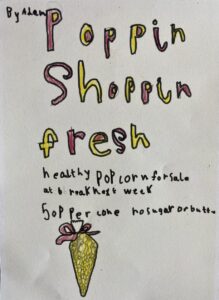 By Adam
Poppin
Shoppin
fresh
healthy popcorn for sale
at break next week
50p per cone no sugar or butter